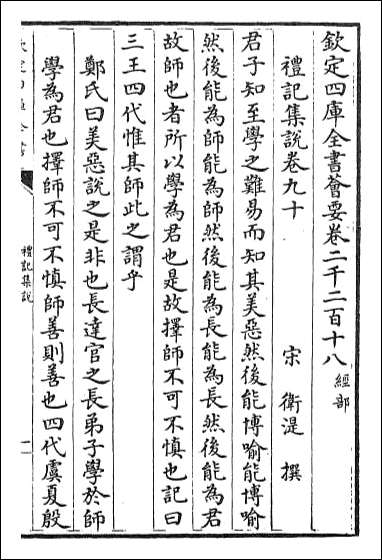 欽定四庫全書薈要卷二千二百十八經部
禮記集說卷九十
宋 衛湜 撰
君子知至學之難易而知其美惡然後能博喻能博喻
然後能為師然後能為長能為長然後能為君
故師也者所以學為君也是故擇師不可不慎也記曰
三王四代惟其師此之謂乎
鄭氏曰美惡說之是非也長達官之長弟子學於師
學為君也擇師不可不慎師善則善也四代虞夏殷
禮記集說
一